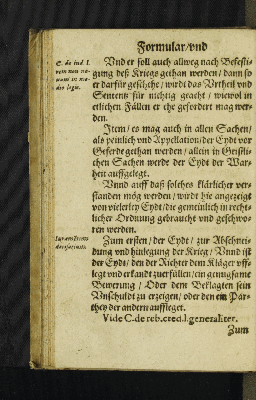 Formular/vnd
C. de iud. l.
rem non no-
uam in me-
dio legis.
Vnd er soll auch allweg nach Befesti-
gung deß Kriegs gethan werden/ dann so
er darfür geschicht/ wirdt das Vrtheil vnd
Sententz für nichtig geacht/ wiewol in
etlichen Fällen er ehe gefordert mag wer-
den.
Item/ es mag auch in allen Sachen/
als peinlich vnd Appellation/ der Eydt vor
Geferde gethan werden/ allein in Geistli-
chen Sachen werde der Eydt der War-
heit auffgelegt.
Vnnd auff daß solches klärlicher ver-
standen mög werden/ wirdt hie angezeigt
von vielerley Eydt/ die gemeinlich in recht-
licher Ordnung gebraucht vnd geschwo-
ren werden.
Zum ersten/ der Eydt/ zur Abschnei-
dung vnd hinlegung der Krieg/ Vnnd ist
der Eydt/ den der Richter dem Kläger vff-
legt vnd erkandt zuerfüllen/ ein genugsame
Bewerung/ Oder dem Beklagten sein
Vnschuldt zu erzeigen/ oder den ein Par-
they der andern auffleget.
Vide C. de reb. cred. l. generaliter.
Zum